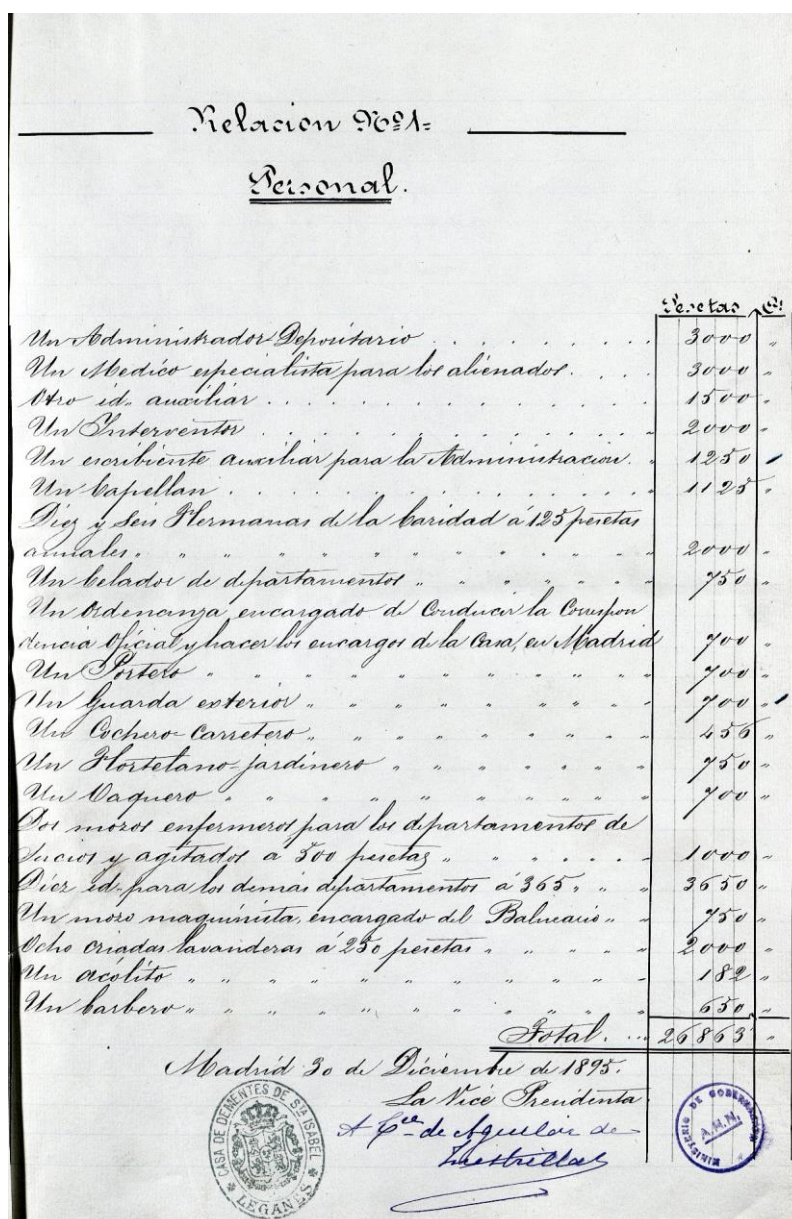 Relacion Nº 1=
Personal.
Pesetas Cs
Un Administrador Depositario . . . . . . . 3000 "
Un Medico especialista para los alienados . . . . 3000 "
Otro id. auxiliar . . . . . . . . . . . . 1500 "
Un Interventor . . . . . . . . . . . . 2000 "
Un escribiente auxiliar para la Administracion. " 1250 "
Un Capellan . . . . . . . . . . . . . 1125 "
Diez y Seis Hermanas de la Caridad á 125 pesetas
anuales " " " " " " " " " " 2000 "
Un belador de departamentos " " " " " " 750 "
Un Ordenanza encargado de Conducir la Correspon
dencia Oficial, y hacer los encargos de la Casa, en Madrid 700 "
Un Portero " " " " " " " " " 700 "
Un Guarda exterior " " " " " " " 700 "
Un Cochero-Carretero " " " " " " " 456 "
Un Hortelano-jardinero " " " " " " 750 "
Un Vaquero " " " " " " " " 700 "
Dos mozos enfermeros para los departamentos de
Sucios y agitados a 500 pesetas " " " " " 1000 "
Diez id. para los demás departamentos á 365 " " " 3650 "
Un mozo maquinista, encargado del Balneario " " 750 "
Ocho criadas lavanderas á 250 pesetas " " " " " 2000 "
Un acólito " " " " " " " " " 182 "
Un barbero " " " " " " " " " 650 "
Total. ... 26863 "
Madrid 30 de Diciembre de 1895.
La Vice Presidenta
CASA DE DEMENTES DE STA ISABEL
LEGANÉS
A Cª de Aguilar de
Inestrillas
MINISTERIO DE GOBERNACION
A.H.N.